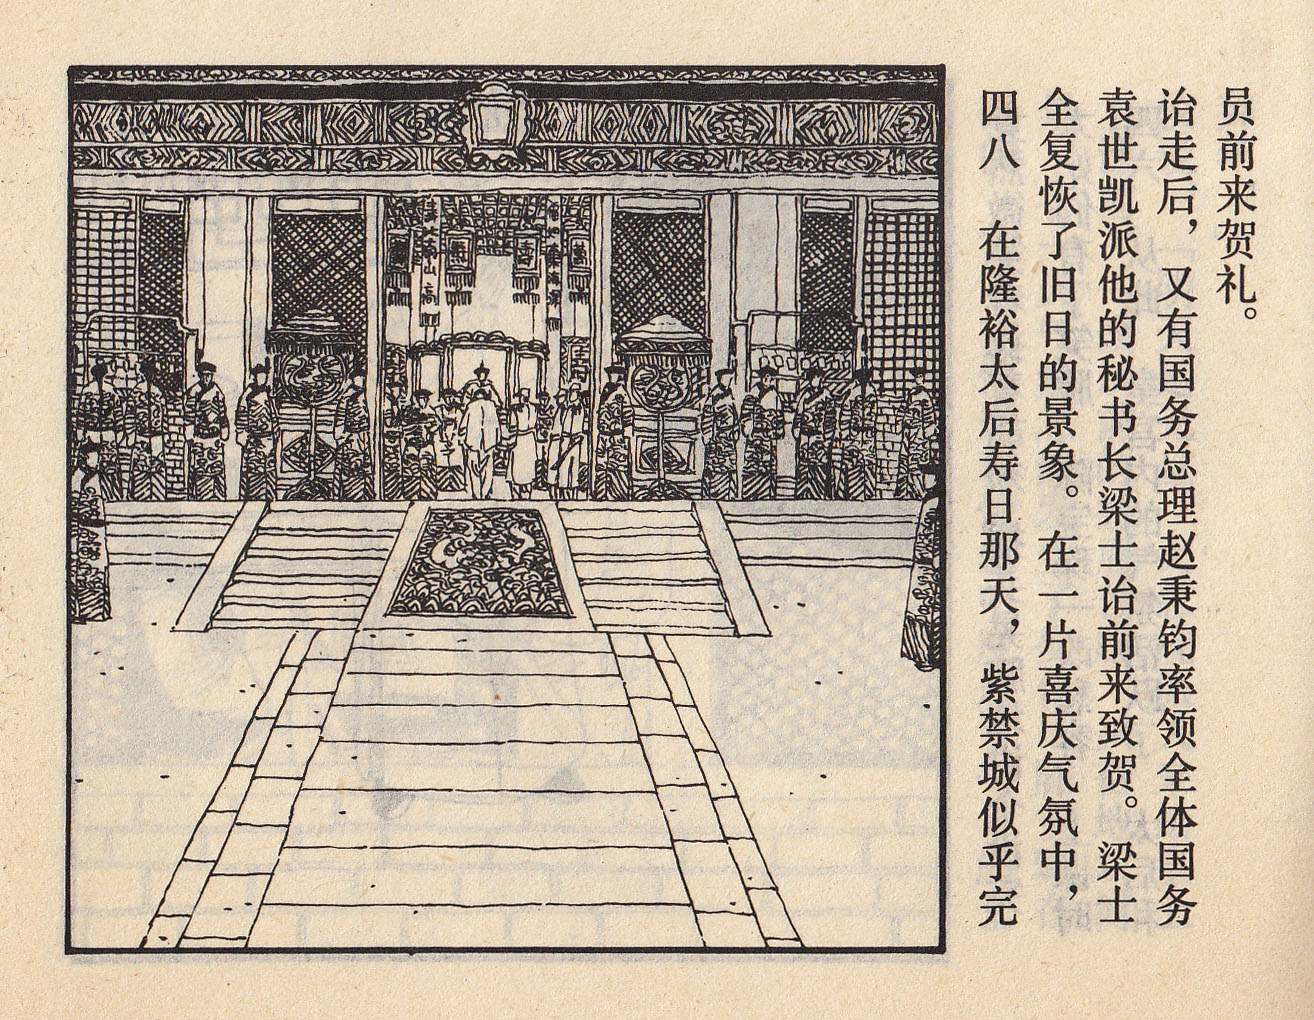 四八 在隆裕太后寿日那天，紫禁城似乎完
全复恢了旧日的景象。在一片喜庆气氛中，
袁世凯派他的秘书长梁士诒前来致贺。梁士
诒走后，又有国务总理赵秉钧率领全体国务
员前来贺礼。
壽比南山高
福如東海深